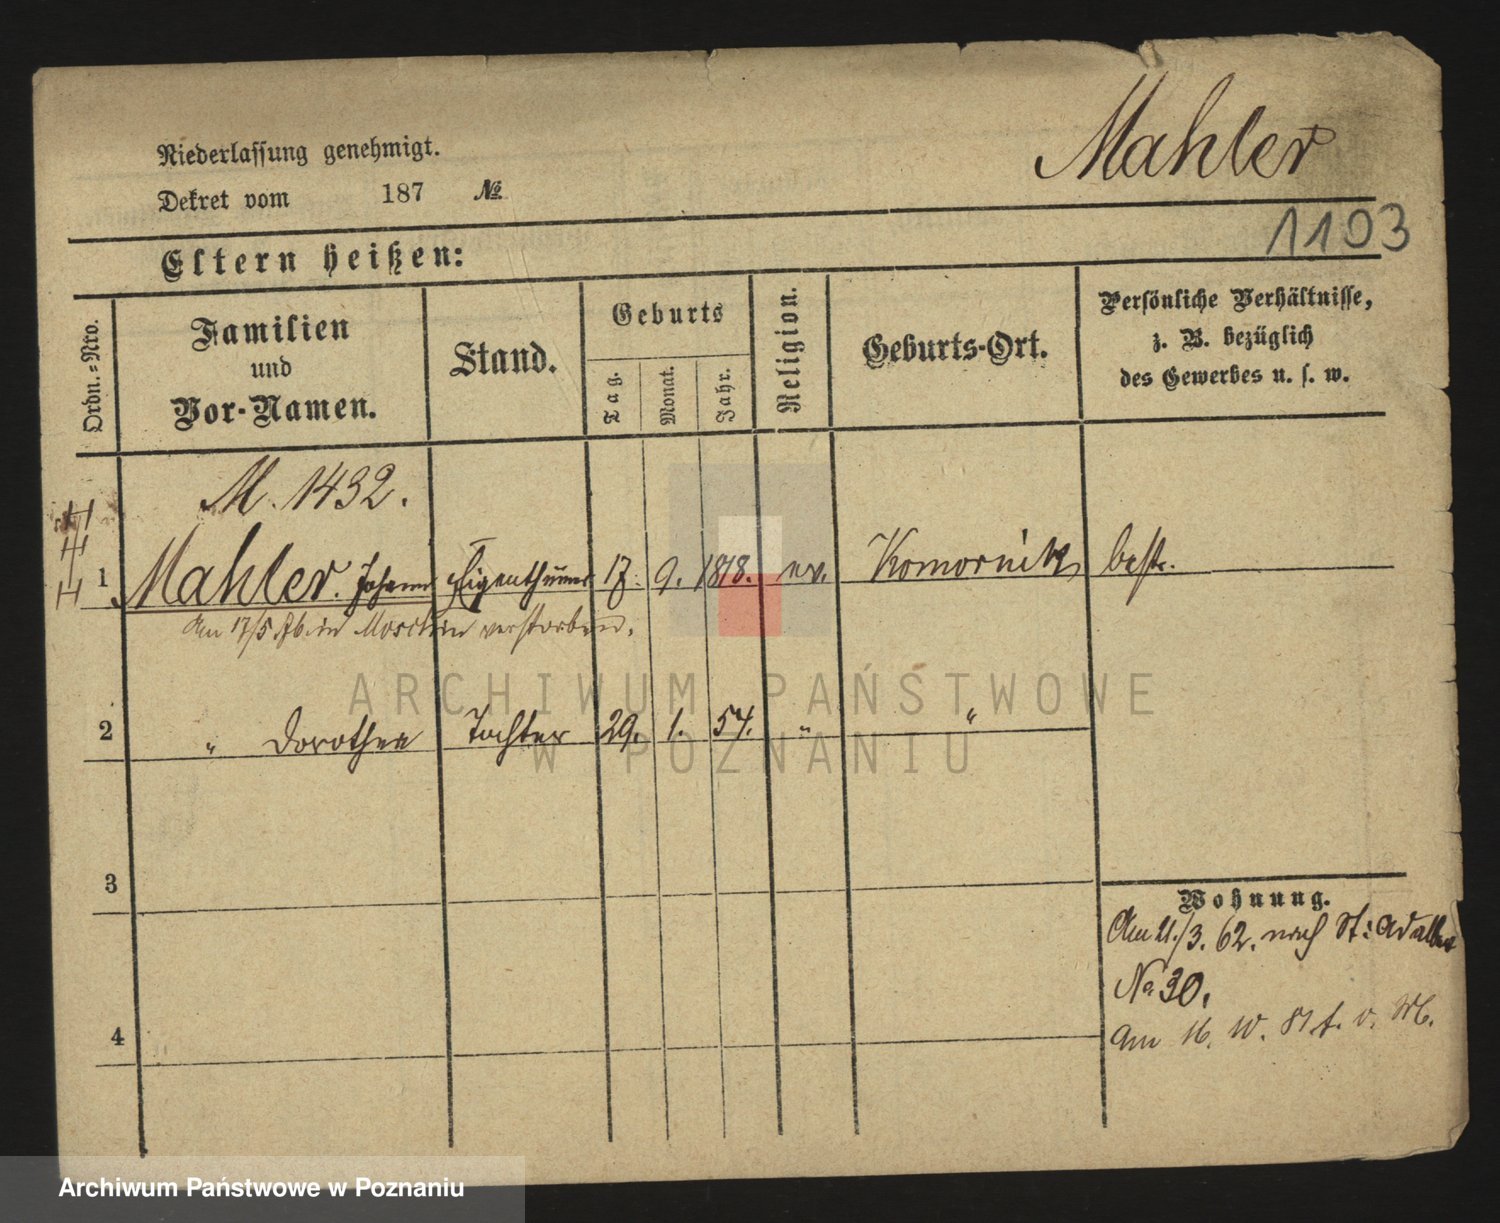 Mahler
Niederlassung genehmigt.
Dekret vom 187 №
1103
Eltern heißen:
Ordn.-Nro.
Familien und Vor-Namen.
Stand.
Geburts
Tag.
Monat.
Jahr.
Religion.
Geburts-Ort.
Persönliche Verhältnisse,
z. B. bezüglich
des Gewerbes u. s. w.
M. 1432.
1 Mahler. Johann Eigenthümer 17. 9. 1818. ev. Komornik
Am 17/5 76. in Moschin verstorben.
2 " Dorothea Tochter 29. 1. 54. " "
3
Wohnung.
Am 21./3. 62. nach St: Adalbert
No 30.
4
Am 16. 10.
ARCHIWUM PAŃSTWOWE
W POZNANIU
Archiwum Państwowe w Poznaniu